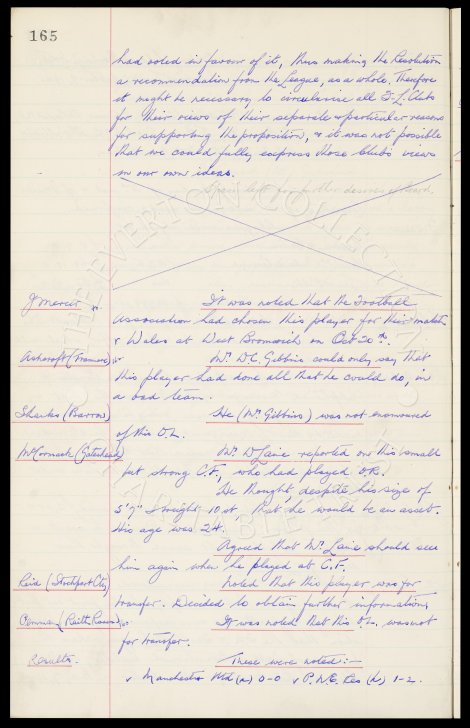 165
had voted in favour of it, thus making the Resolution
a recommendation from the League, as a whole. Therefore
it might be necessary to circularise all F.L. Clubs
for their views of their separate & particular reasons
for supporting the proposition, & it was not possible
that we could fully express those Club's views
in our own ideas.
Space left for further desires of Board.
THE EVERTON COLLECTION
CHARITABLE TRUST
J. Mercer It was noted that the Football
Association had chosen this player for their match
v Wales at West Bromwich on Oct 20th.
Ashcroft (Tranmere) Mr. D.C. Gibbins could only say that
this player had done all that he could do, in
a bad team.
Sharkes (Barrow) He (Mr. Gibbins) was not enamoured
of this O.L.
McCormack (Gateshead) Mr. W. Laine reported on this small
but strong C.F., who had played O.R.
He thought, despite his size of
5'7" & weight 10 st that he would be an asset.
His age was 24.
Agreed that Mr. Laine should see
him again when he played at C.F.
Reid (Stockport Cty) Noted that this player was for
transfer. Decided to obtain further information,
(Raith Rovers) It was noted that this O.L. was not
for transfer.
Results. These were noted :-
v Manchester Utd (a) 0-0 v P.N.E. Res (h) 1-2.